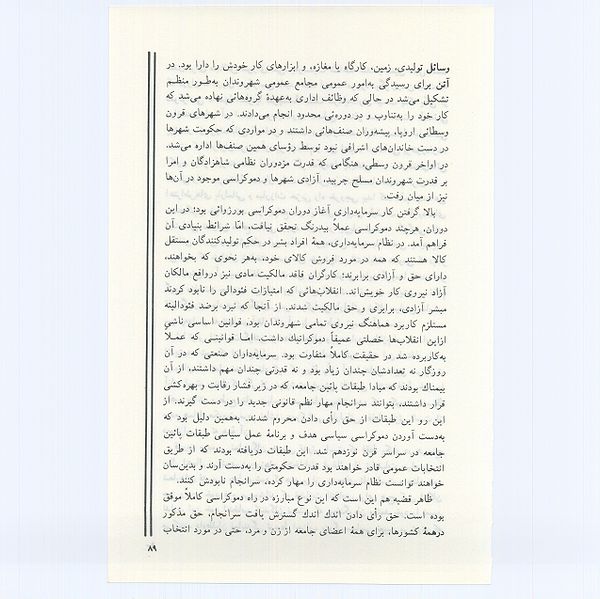 وسائل تولیدی، زمین، کارگاه یا مغازه، و ابزارهای کار خودش را دارا بود. در
آتن برای رسیدگی به‌امور عمومی مجامع عمومی شهروندان به‌طور منظم
تشکیل می‌شد در حالی که وظائف اداری به‌عهدهٔ گروه‌هائی نهاده می‌شد که
کار خود را به‌تناوب و در دوره‌ئی محدود انجام می‌دادند. در شهرهای قرون
وسطائی اروپا، پیشه‌وران صنف‌هائی داشتند و در مواردی که حکومت شهرها
در دست خاندان‌های اشرافی نبود توسط رؤسای همین صنف‌ها اداره می‌شد.
در اواخر قرون وسطی، هنگامی که قدرت مزدوران نظامی شاهزادگان و امرا
بر قدرت شهروندان مسلح چربید، آزادی شهرها و دموکراسی موجود در آن‌ها
نیز از میان رفت.
بالا گرفتن کار سرمایه‌داری آغاز دوران دموکراسی بورژوائی بود؛ در این
دوران، هرچند دموکراسی عملاً بیدرنگ تحقق نیافت، امّا شرائط بنیادی آن
فراهم آمد. در نظام سرمایه‌داری، همهٔ افراد بشر در حکم تولیدکنندگان مستقل
کالا هستند که همه در مورد فروش کالای خود، به‌هر نحوی که بخواهند،
دارای حق و آزادی برابرند؛ کارگران فاقد مالکیت مادی نیز درواقع مالکان
آزاد نیروی کار خویش‌اند. انقلاب‌هائی که امتیازات فئودالی را نابود کردند
مبشر آزادی، برابری و حق مالکیت شدند. از آنجا که نبرد برضد فئودالیته
مستلزم کاربرد هماهنگ نیروی تمامی شهروندان بود، قوانین اساسی ناشی
ازاین انقلاب‌ها خصلتی عمیقاً دموکراتیک داشت. امـا قوانینـی که عمـلاً
به‌کاربرده شد در حقیقت کاملاً متفاوت بود. سرمایه‌داران صنعتی که در آن
روزگار نه تعدادشان چندان زیاد بود و نه قدرتی چندان مهم داشتند، از آن
بیمناک بودند که مبادا طبقات پائین جامعه، که در زیر فشار رقابت و بهره‌کشی
قرار داشتند، بتوانند سرانجام مهار نظم قانونی جدید را در دست گیرند. از
این رو این طبقات از حق رأی دادن محروم شدند. به‌همین دلیل بود که
به‌دست آوردن دموکراسی سیاسی هدف و برنامهٔ عمل سیاسی طبقات پائین
جامعه در سراسر قرن نوزدهم شد. این طبقات دریافته بودند که از طریق
انتخابات عمومی قادر خواهند بود قدرت حکومتی را به‌دست آرند و بدین‌سان
خواهند توانست نظام سرمایه‌داری را مهار کرده، سرانجام نابودش کنند.
ظاهر قضیه هم این است که این نوع مبارزه در راه دموکراسی کاملا موفق
بوده است. حق رأی دادن اندك اندك گسترش یافت سرانجام، حق مذکور
درهمهٔ کشورها، برای همهٔ اعضای جامعه از زن و مرد، حتی در مورد انتخاب
۸۹